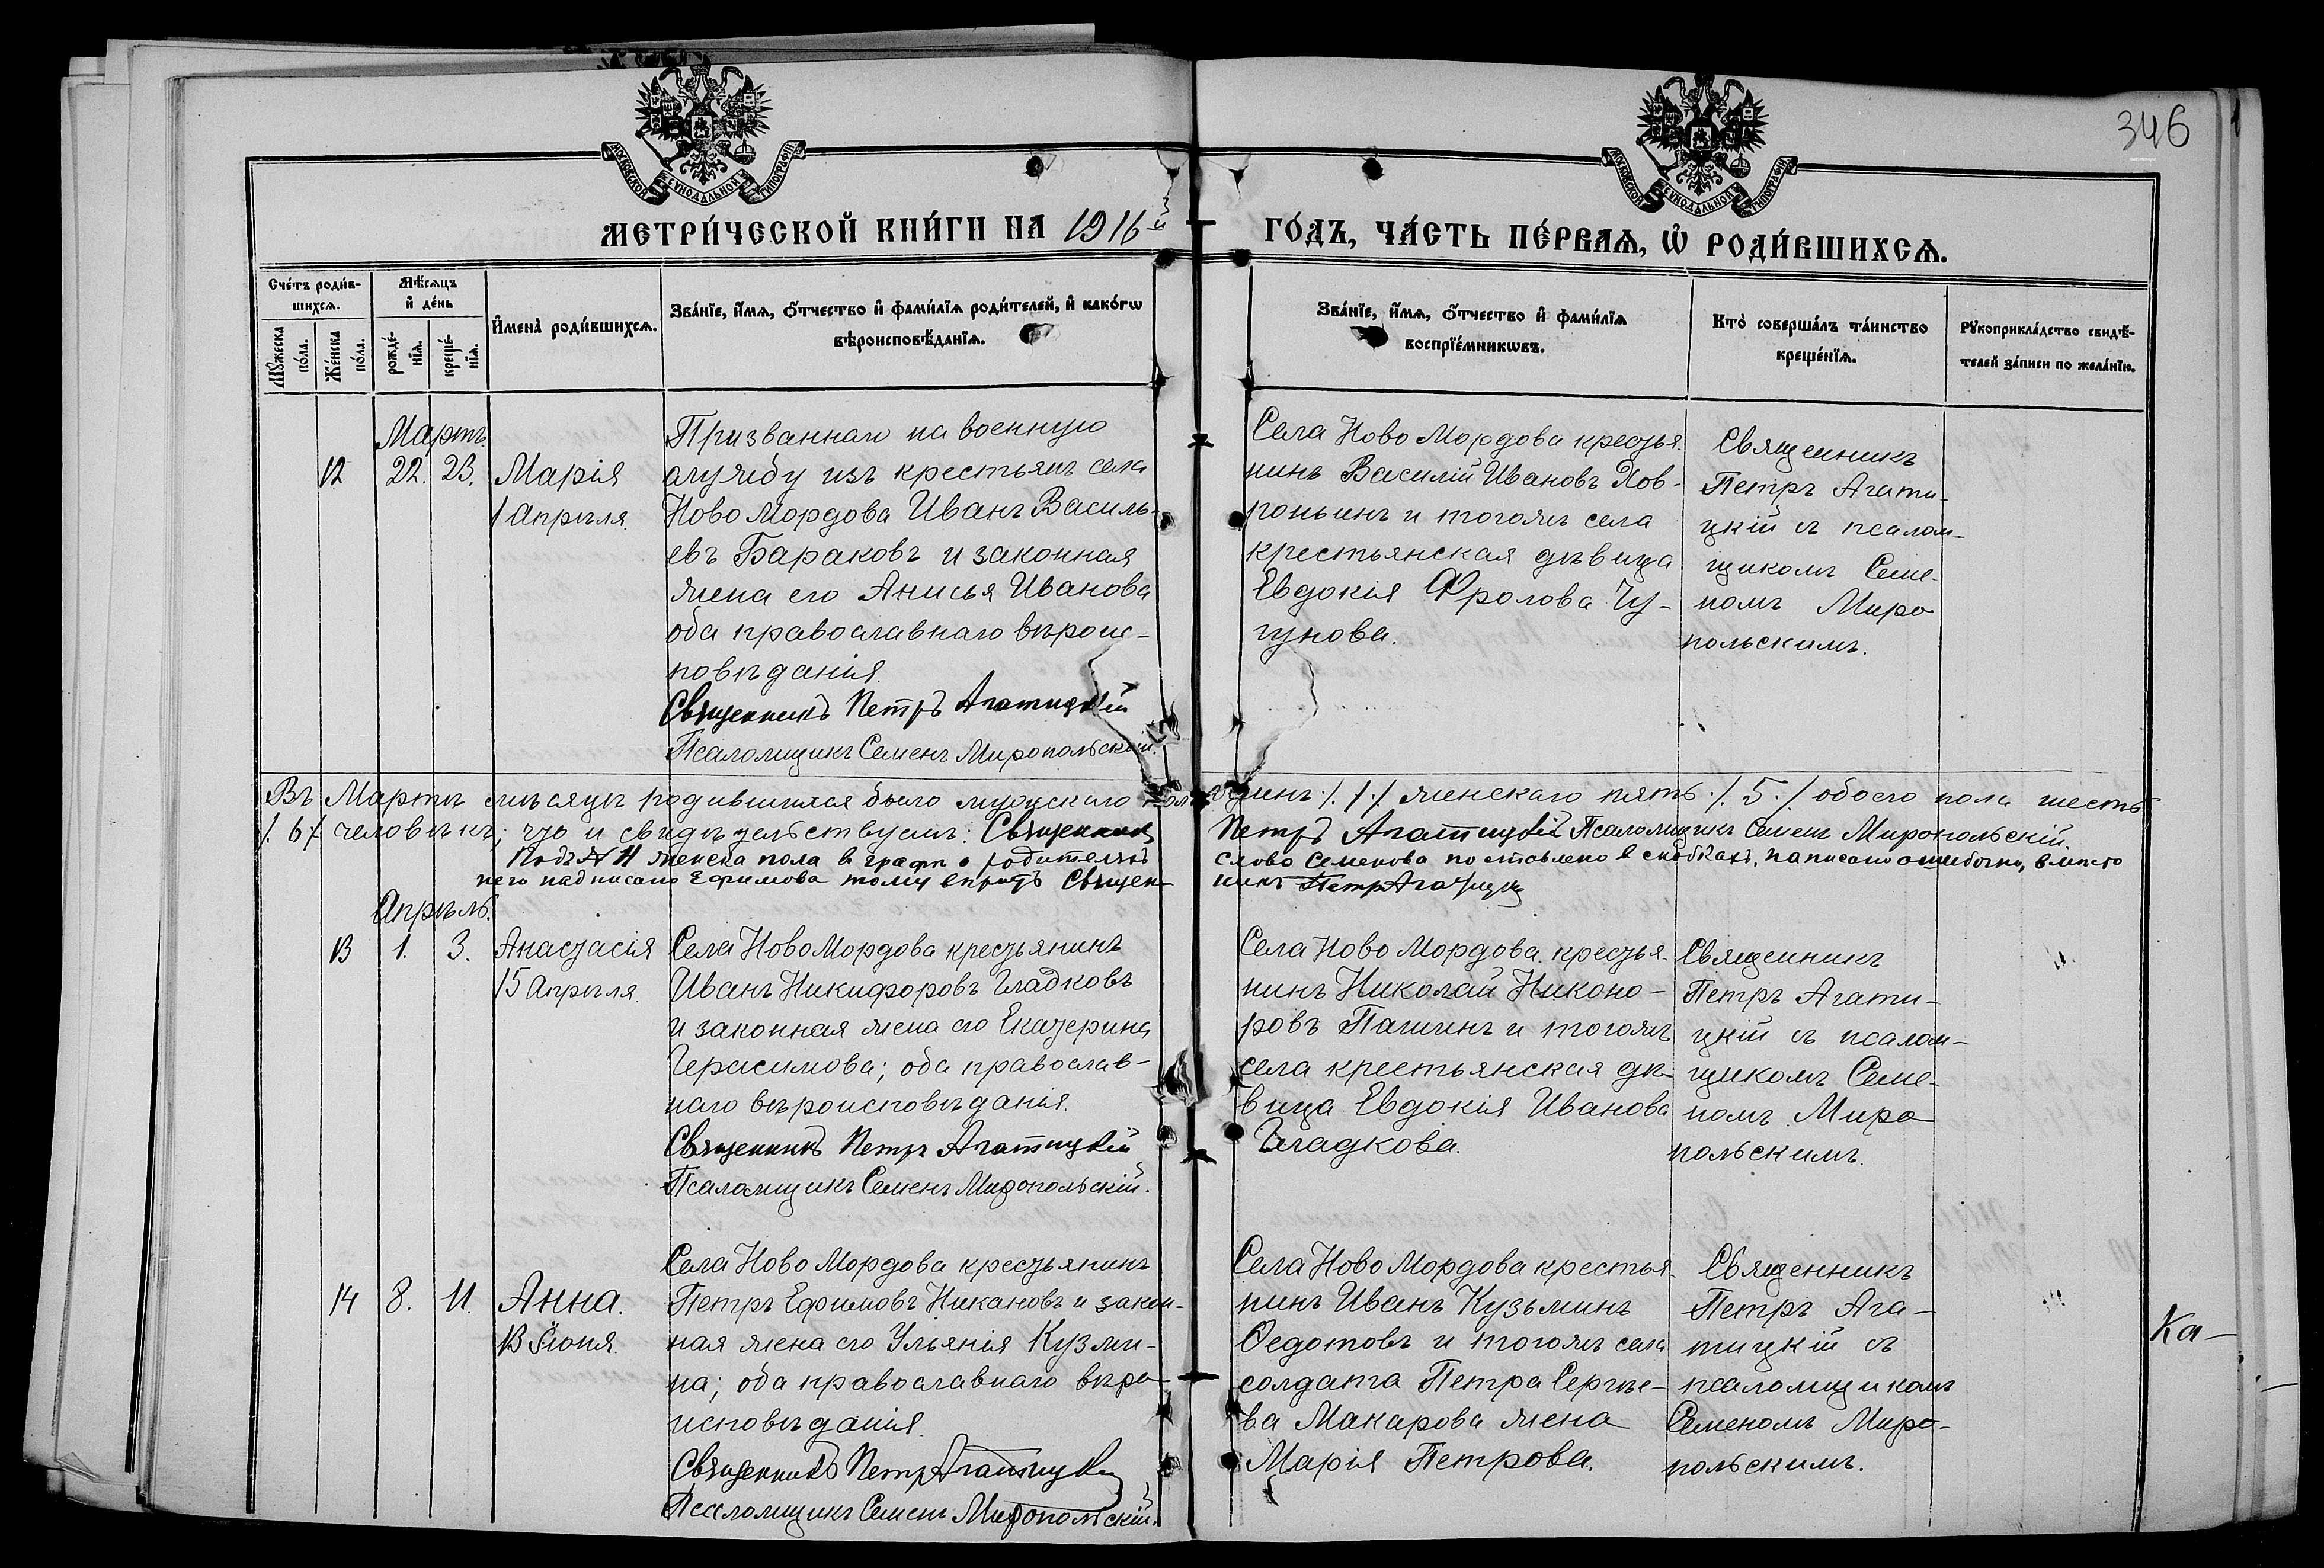 346
МОСКОВСКОЙ СУНОДАЛЬНОЙ ТИПОГРАФІИ
МОСКОВСКОЙ СУНОДАЛЬНОЙ ТИПОГРАФІИ
МЕТРИ́ЧЕСКОЙ КНИ́ГИ НА 1916-й
ГО́ДЪ, ЧА́СТЬ ПЕ́РВАѦ, Ѡ҆ РОДИ́ВШИХСѦ.
Сче́тъ роди́в-
шихсѧ.
Мѣ́сѧцъ
и҆ де́нь
И҆мена̀ роди́вшихсѧ.
Зва́нїе, и҆́мѧ, ѻ҆́тчество и҆ фами́лїѧ роди́телей, и҆ како́гѡ
вѣроисповѣ́данїѧ.
Мꙋ́жеска
по́ла.
Же́нска
по́ла.
рожде́-
нїѧ.
креще́-
нїѧ.
Зва́нїе, и҆́мѧ, ѻ҆́тчество и҆ фами́лїѧ
воспрїе́мникѡвъ.
Кто̀ соверша́лъ та́инство
креще́нїѧ.
Рꙋкоприкла́дство свидѣ́-
телей за́писи по жела́нїю.
Мартъ.
12 22. 23. Марія
1 Апрѣля.
Призваннаго на военную
службу изъ крестьянъ села
Ново Мордова Иванъ Василь-
евъ Бараковъ и законная
жена его Анисья Иванова
оба православнаго вѣроис-
повѣданія.
Священникъ Петръ Агатицкій
Псаломщикъ Семенъ Миропольскій.
Села Ново Мордова крестья-
нинъ Василій Ивановъ Хов-
роньинъ и тогожъ села
крестьянская дѣвица
Евдокія Фролова Чу-
гунова.
Священникъ
Петръ Агати-
цкій съ псалом-
щикомъ Семе-
номъ Миро
польскимъ.
Въ Мартѣ мѣсяцѣ родившихся было мужскаго пола одинъ /.1./ женскаго пять /.5./ обоего пола шесть
/.6/ человѣкъ; что и свидѣтельствуемъ: Священникъ Петръ Агатицкій Псаломщикъ Семенъ Миропольскій.
Подъ № 11 женска пола в графѣ о родителяхъ слово Семенова поставлено в скобкахъ, написано ошибочно, вместо
него надписано Ефимова тому вѣрить Священ- никъ Петръ Агатицкій
Апрѣль.
13 1. 3. Анастасія
15 Апрѣля.
Села Ново Мордова крестьянинъ
Иванъ Никифоровъ Гладковъ
и законная жена его Екатерина
Герасимова; оба православ-
наго вѣроисповѣданія.
Священникъ Петръ Агатицкій
Псаломщикъ Семенъ Миропольскій.
Села Ново Мордова крестья-
нинъ Николай Николо-
ровъ Пашинъ и тогожъ
села крестьянская дѣ-
вица Евдокія Иванова
Гладкова.
Священникъ
Петръ Агати-
цкій съ псалом-
щикомъ Семе-
номъ Миро
польскимъ.
14 8. 11. Анна.
13 Іюня.
Села Ново Мордова крестьянинъ
Петръ Ефимовъ Никановъ и закон-
ная жена его Ульянія Кузми-
на; оба православнаго вѣро-
исповѣданія.
Священникъ Петръ Агатицкій
Псаломщикъ Семенъ Миропольскій.
Села Ново Мордова крестья-
нинъ Иванъ Кузьминъ
Ѳедотовъ и тогожъ села
солдата Петра Сергѣе-
ва Макарова жена
Марія Петрова.
Священникъ
Петръ Ага-
тицкій съ
псаломщикомъ
Семеномъ Миро-
польскимъ.
Ка-